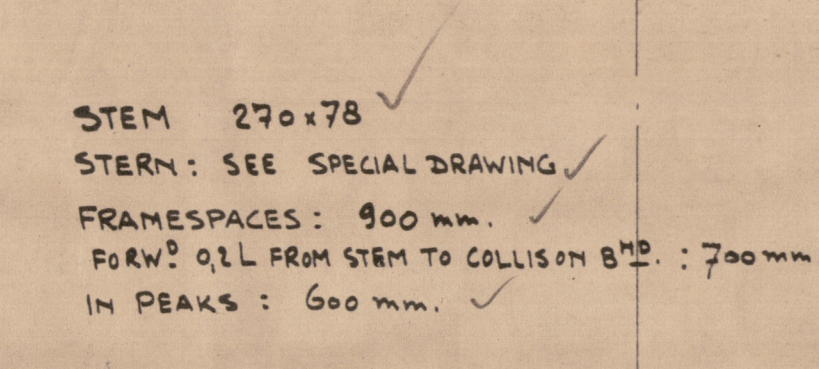 STEM 270x78
STERN: SEE SPECIAL DRAWING
FRAMESPACES: 900 mm.
FORWᴰ 0,2L FROM STEM TO COLLISON BHD. : 700mm
IN PEAKS : 600 mm.